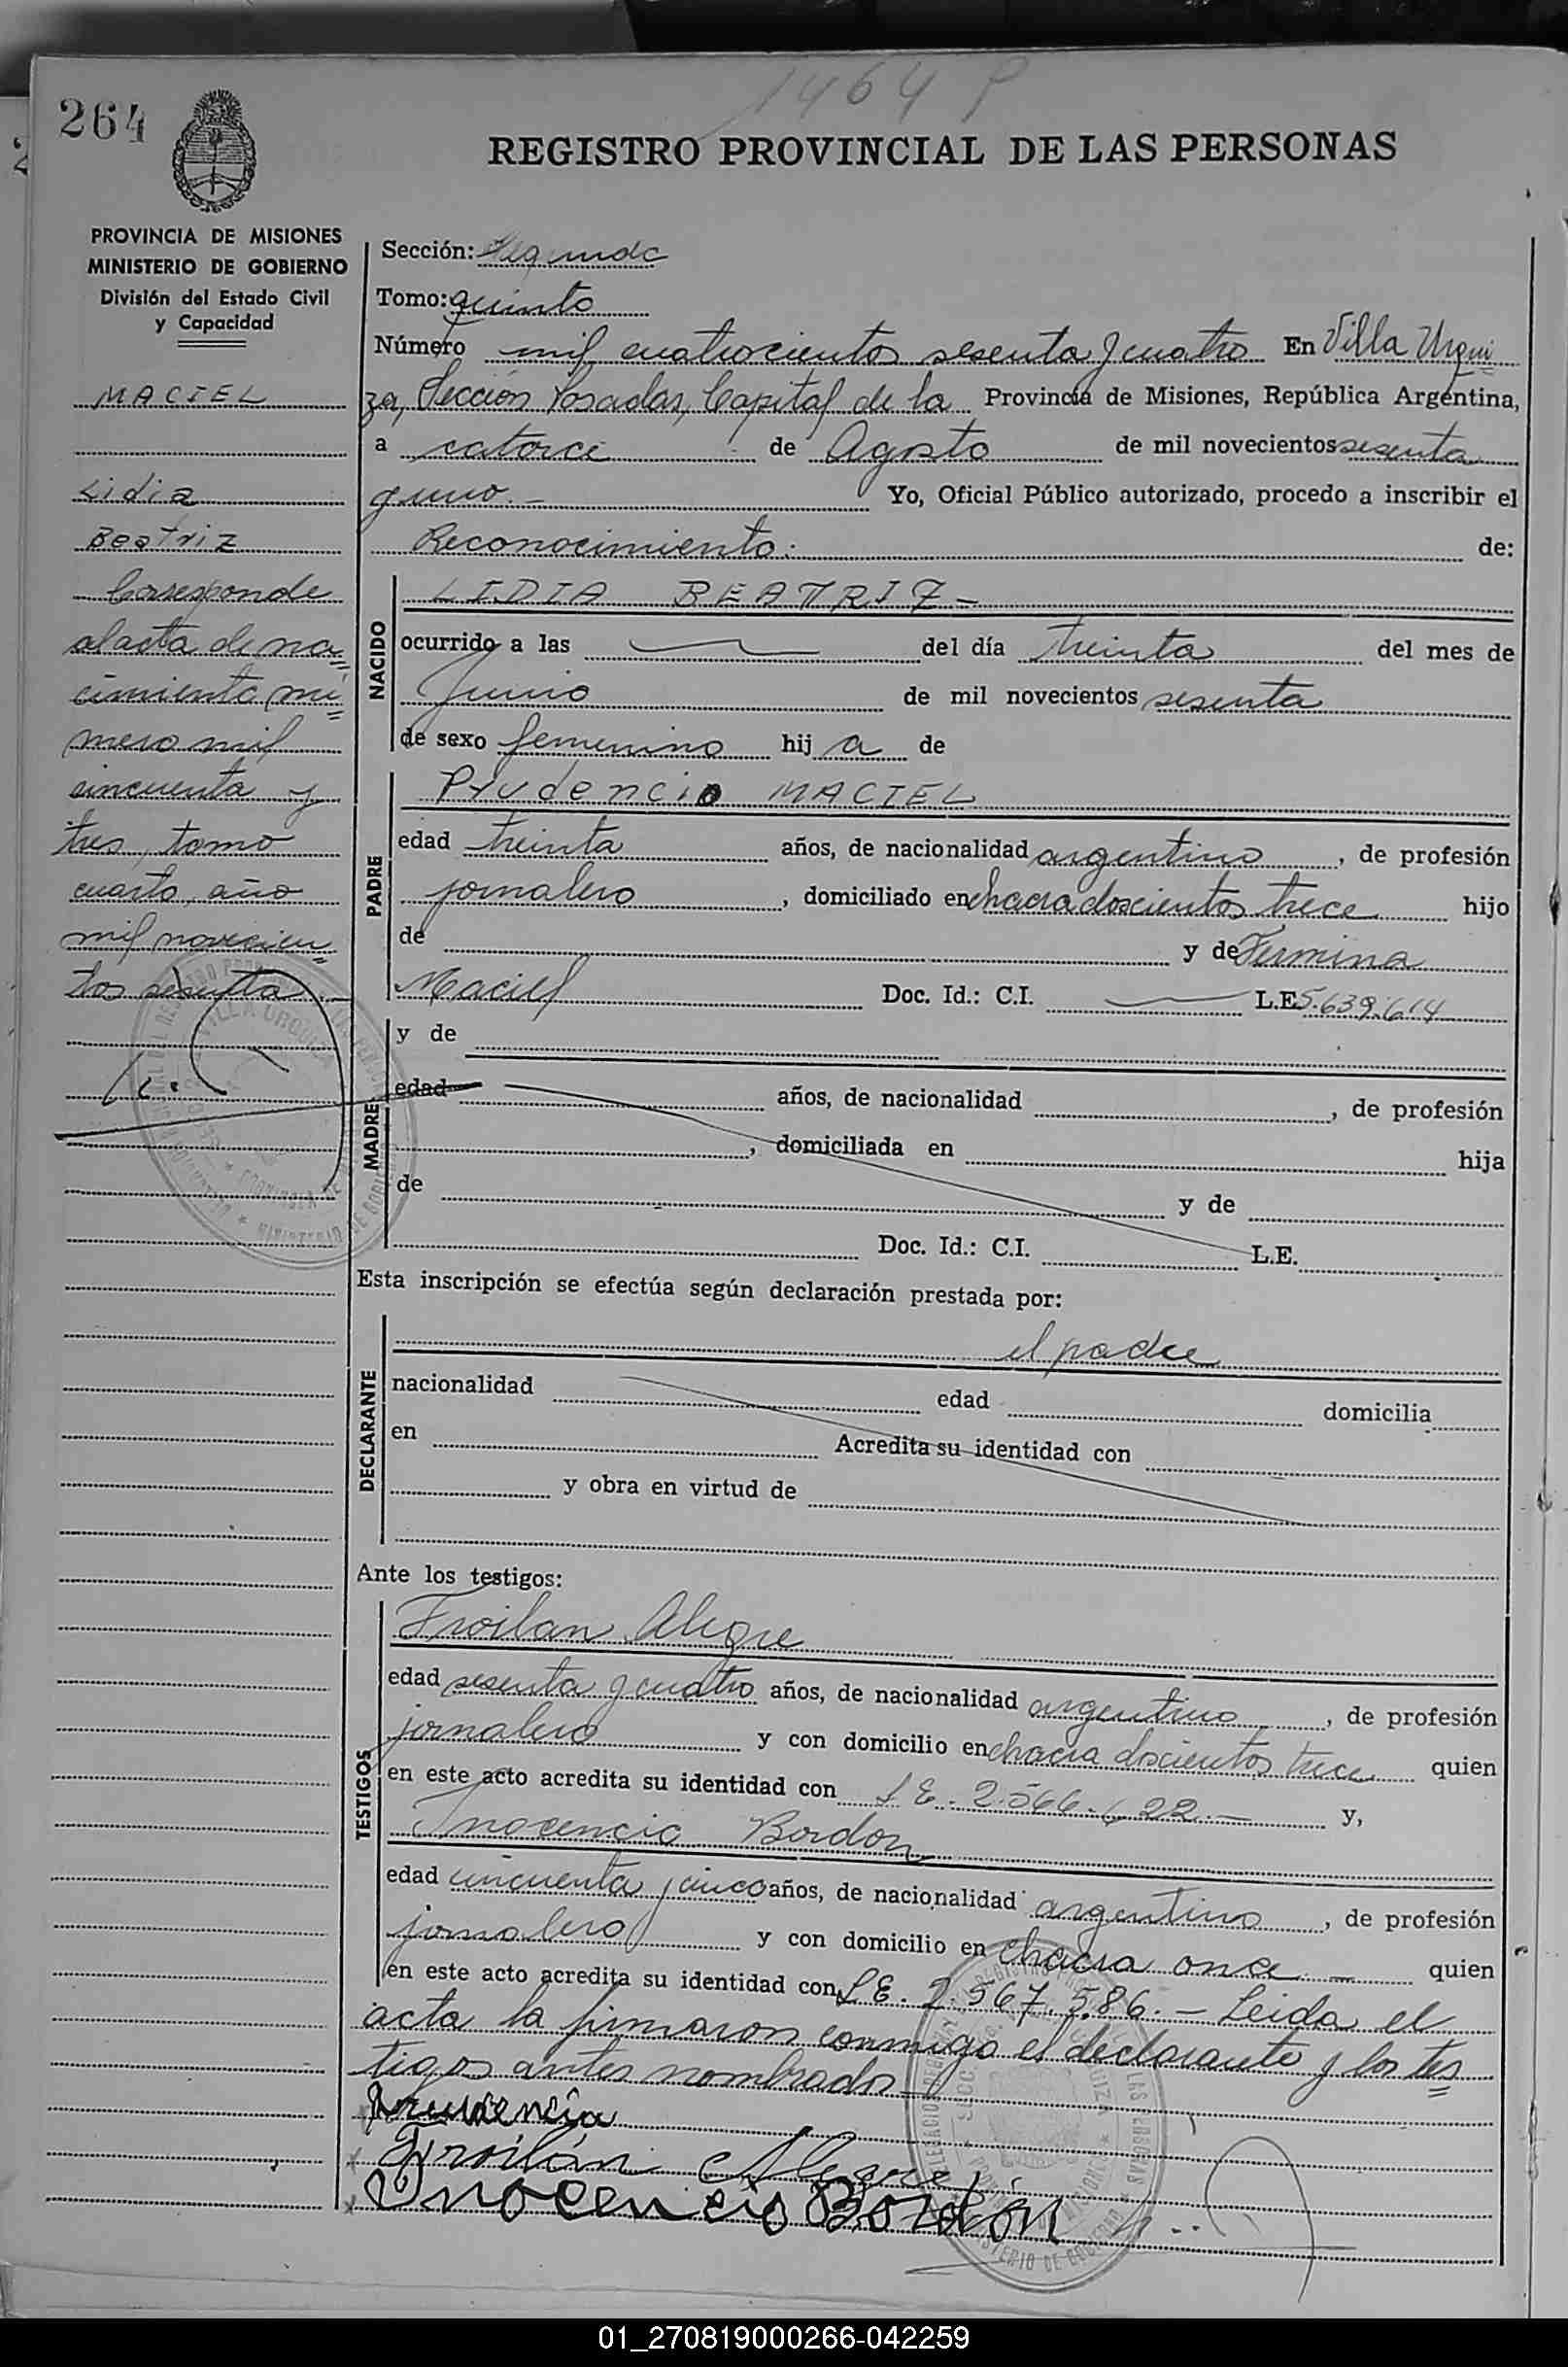 1464 P
264
REGISTRO PROVINCIAL DE LAS PERSONAS
PROVINCIA DE MISIONES
MINISTERIO DE GOBIERNO
División del Estado Civil
y Capacidad
MACIEL
Lidia
Beatriz
Corresponde
al acta de na=
cimiento nú=
mero mil
cincuenta y
tres, tomo
cuarto, año
mil novecien=
tos sesenta
Sección: Segunda
Tomo: quinto
Número mil cuatrocientos sesenta y cuatro En Villa Urqui
za, Sección Posadas, Capital de la Provincia de Misiones, República Argentina,
a catorce de Agosto de mil novecientos sesenta
y uno.- Yo, Oficial Público autorizado, procedo a inscribir el
Reconocimiento: de:
NACIDO
LIDIA BEATRIZ-
ocurrido a las del día treinta del mes de
Junio de mil novecientos sesenta
de sexo femenino hija de
PADRE
Prudencio MACIEL
edad treinta años, de nacionalidad argentino, de profesión
jornalero, domiciliado en chacra doscientos trece hijo
de y de Fermina
Maciel Doc. Id.: C.I. L.E. 5.639.614
MADRE
y de
edad años, de nacionalidad , de profesión
, domiciliada en hija
de y de
Doc. Id.: C.I. L.E.
Esta inscripción se efectúa según declaración prestada por:
DECLARANTE
el padre
nacionalidad edad domicilia
en Acredita su identidad con
y obra en virtud de
Ante los testigos:
TESTIGOS
Froilan Alegre
edad sesenta y cuatro años, de nacionalidad argentino, de profesión
jornalero y con domicilio en chacra doscientos trece quien
en este acto acredita su identidad con L E. 2.566.622.- y,
Inocencio Bordon
edad cincuenta y cinco años, de nacionalidad argentino, de profesión
jornalero y con domicilio en chacra once quien
en este acto acredita su identidad con L E. 2.567.586.- Leida el
acta la firmaron conmigo el declarante y los tes=
tigos antes nombrados
Prudencia
Froilán Alegre
Inocencio Bordón
01_270819000266-042259